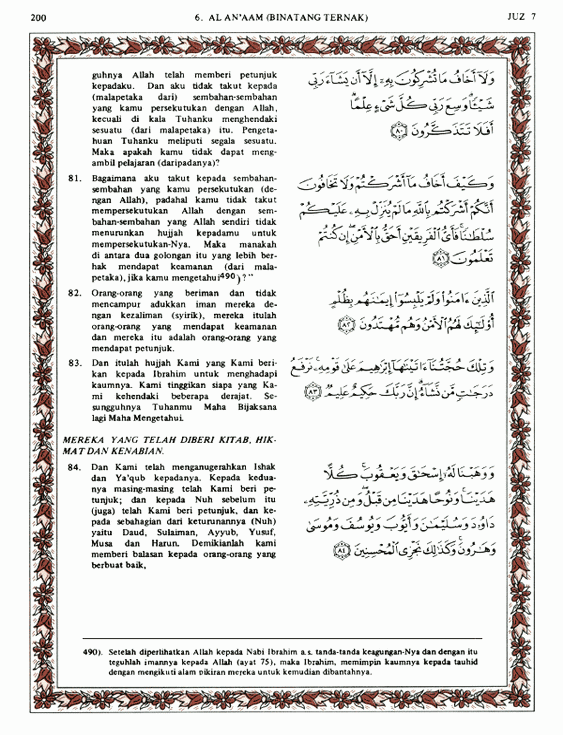 200
6. AL AN'AAM (BINATANG TERNAK)
JUZ 7
guhnya Allah telah memberi petunjuk
kepadaku. Dan aku tidak takut kepada
(malapetaka dari) sembahan-sembahan
yang kamu persekutukan dengan Allah,
kecuali di kala Tuhanku menghendaki
sesuatu (dari malapetaka) itu. Pengeta-
huan Tuhanku meliputi segala sesuatu.
Maka apakah kamu tidak dapat meng-
ambil pelajaran (daripadanya)?
وَلَآ أَخَافُ مَا تُشْرِكُونَ بِهِۦٓ إِلَّآ أَن يَشَآءَ رَبِّى
شَيْـًٔا وَسِعَ رَبِّى كُلَّ شَىْءٍ عِلْمًا
أَفَلَا تَتَذَكَّرُونَ ٨٠
81. Bagaimana aku takut kepada sembahan-
sembahan yang kamu persekutukan (de-
ngan Allah), padahal kamu tidak takut
mempersekutukan Allah dengan sem-
bahan-sembahan yang Allah sendiri tidak
menurunkan hujjah kepadamu untuk
mempersekutukan-Nya. Maka manakah
di antara dua golongan itu yang lebih ber-
hak mendapat keamanan (dari mala-
petaka), jika kamu mengetahui490) ? "
وَكَيْفَ أَخَافُ مَآ أَشْرَكْتُمْ وَلَا تَخَافُونَ
أَنَّكُمْ أَشْرَكْتُم بِٱللَّهِ مَا لَمْ يُنَزِّلْ بِهِۦ عَلَيْكُمْ
سُلْطَٰنًا فَأَىُّ ٱلْفَرِيقَيْنِ أَحَقُّ بِٱلْأَمْنِ إِن كُنتُمْ
تَعْلَمُونَ ٨١
82. Orang-orang yang beriman dan tidak
mencampur adukkan iman mereka de-
ngan kezaliman (syirik), mereka itulah
orang-orang yang mendapat keamanan
dan mereka itu adalah orang-orang yang
mendapat petunjuk.
ٱلَّذِينَ ءَامَنُوا۟ وَلَمْ يَلْبِسُوٓا۟ إِيمَٰنَهُم بِظُلْمٍ
أُو۟لَٰٓئِكَ لَهُمُ ٱلْأَمْنُ وَهُم مُّهْتَدُونَ ٨٢
83. Dan itulah hujjah Kami yang Kami beri-
kan kepada Ibrahim untuk menghadapi
kaumnya. Kami tinggikan siapa yang Ka-
mi kehendaki beberapa derajat. Se-
sungguhnya Tuhanmu Maha Bijaksana
lagi Maha Mengetahui.
وَتِلْكَ حُجَّتُنَآ ءَاتَيْنَٰهَآ إِبْرَٰهِيمَ عَلَىٰ قَوْمِهِۦ نَرْفَعُ
دَرَجَٰتٍ مَّن نَّشَآءُ إِنَّ رَبَّكَ حَكِيمٌ عَلِيمٌ ٨٣
MEREKA YANG TELAH DIBERI KITAB, HIK-
MAT DAN KENABIAN.
84. Dan Kami telah menganugerahkan Ishak
dan Ya'qub kepadanya. Kepada kedua-
nya masing-masing telah Kami beri pe-
tunjuk; dan kepada Nuh sebelum itu
(juga) telah Kami beri petunjuk, dan ke-
pada sebahagian dari keturunannya (Nuh)
yaitu Daud, Sulaiman, Ayyub, Yusuf,
Musa dan Harun. Demikianlah kami
memberi balasan kepada orang-orang yang
berbuat baik,
وَوَهَبْنَا لَهُۥٓ إِسْحَٰقَ وَيَعْقُوبَ كُلًّا
هَدَيْنَا وَنُوحًا هَدَيْنَا مِن قَبْلُ وَمِن ذُرِّيَّتِهِۦ
دَاوُۥدَ وَسُلَيْمَٰنَ وَأَيُّوبَ وَيُوسُفَ وَمُوسَىٰ
وَهَٰرُونَ وَكَذَٰلِكَ نَجْزِى ٱلْمُحْسِنِينَ ٨٤
490). Setelah diperlihatkan Allah kepada Nabi Ibrahim a.s. tanda-tanda keagungan-Nya dan dengan itu
teguhlah imannya kepada Allah (ayat 75), maka Ibrahim, memimpin kaumnya kepada tauhid
dengan mengikuti alam pikiran mereka untuk kemudian dibantahnya.